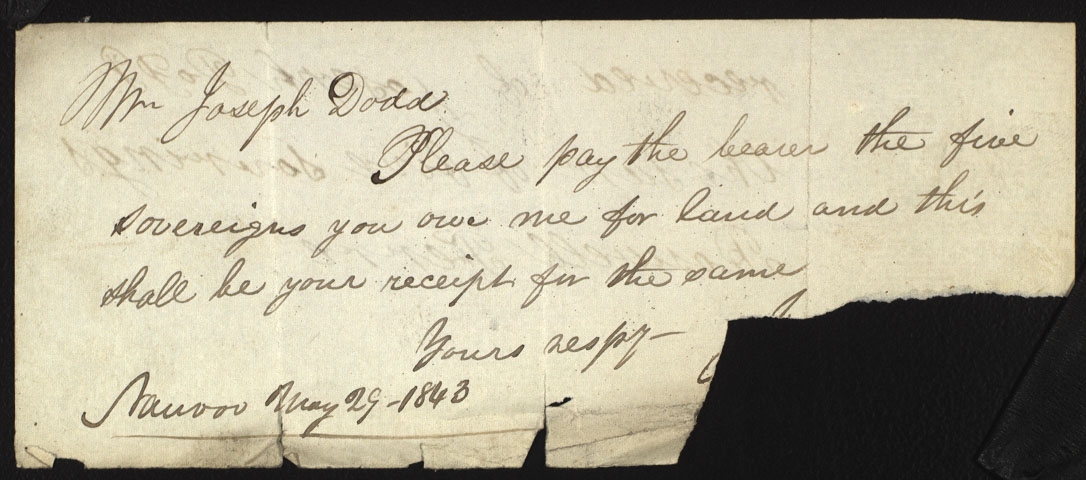 Mr Joseph Dodd
Please pay the bearer the five
sovereigns you owe me for land and this
shall be your receipt for the same
Yours respy
Nauvoo May 29-1843